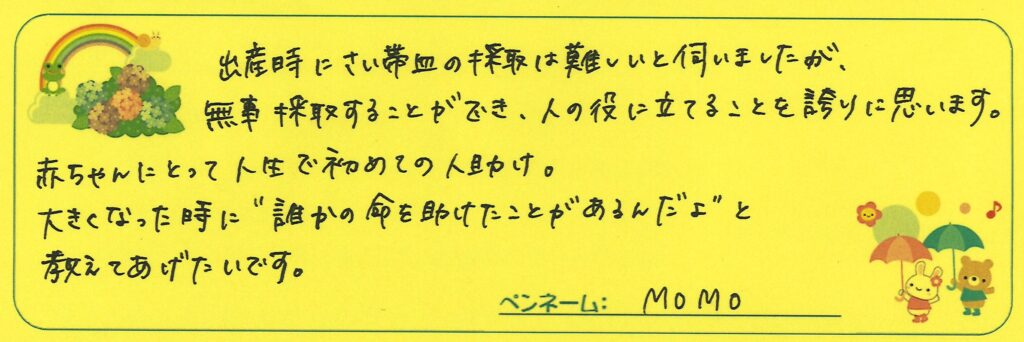 出産時にさい帯血の採取は難しいと伺いましたが、
無事採取することができ、人の役に立てることを誇りに思います。
赤ちゃんにとって人生で初めての人助け。
大きくなった時に"誰かの命を助けたことがあるんだよ"と
教えてあげたいです。
ペンネーム: MOMO